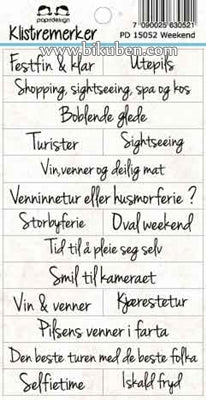 papirdesign
7090025630521
Klistremerker PD 15052 Weekend
www.bikuben.com
Festfin & klar Utepils
Shopping, sightseeing, spa og kos
Boblende glede
Turister Sightseeing
Vin, venner og deilig mat
Venninnetur eller husmorferie ?
Storbyferie Oval weekend
Tid til å pleie seg selv
Smil til kameraet
Vin & venner Kjærestetur
Pilsens venner i farta
Den beste turen med de beste folka
Selfietime Iskald fryd